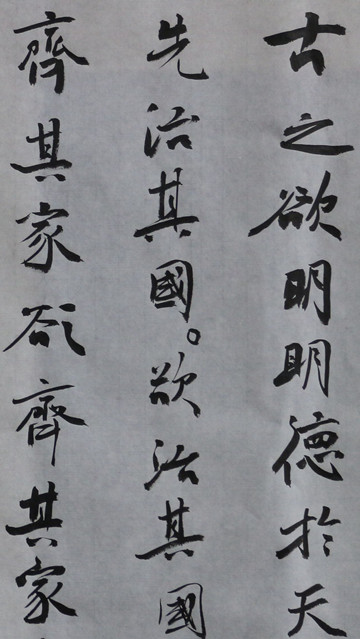 古之欲明明德於天
先治其國。欲治其國
齊其家欲齊其家